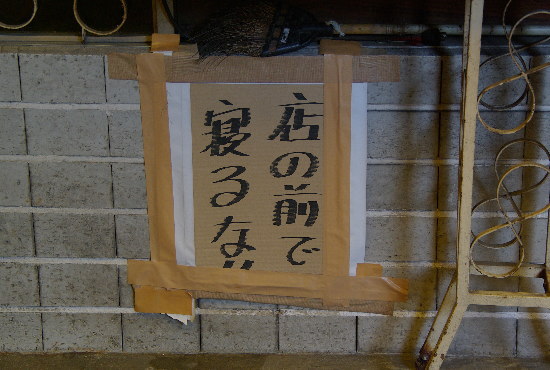 店の前で
寝るな!!